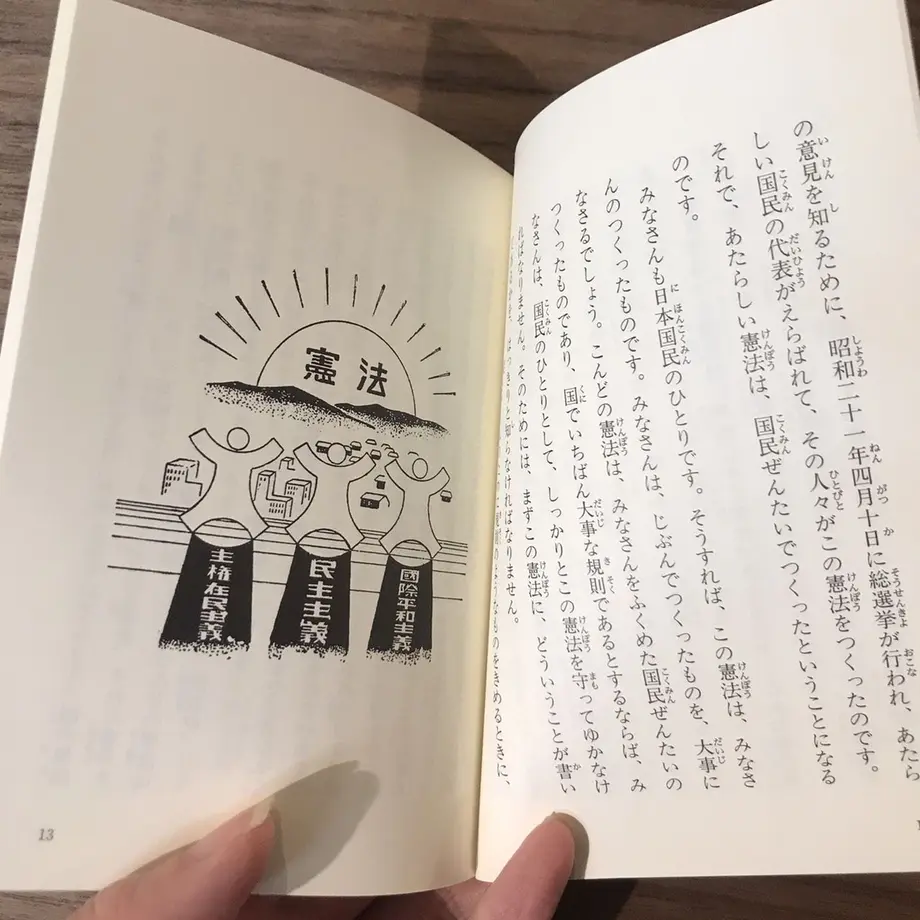 の意見を知るために、昭和二十一年四月十日に総選挙が行われ、あたら
しい国民の代表がえらばれて、その人々がこの憲法をつくったのです。
それで、あたらしい憲法は、国民ぜんたいでつくったということになる
のです。
みなさんも日本国民のひとりです。そうすれば、この憲法は、みなさ
んのつくったものです。みなさんは、じぶんでつくったものを、大事に
なさるでしょう。こんどの憲法は、みなさんをふくめた国民ぜんたいの
つくったものであり、国でいちばん大事な規則であるとするならば、み
なさんは、国民のひとりとして、しっかりとこの憲法を守ってゆかなけ
ればなりません。そのためには、まずこの憲法に、どういうことが書い
きりと知らなければなりません。
のようなものをきめるときに、
憲法
主権在民主義
民主主義
國際平和主義
13